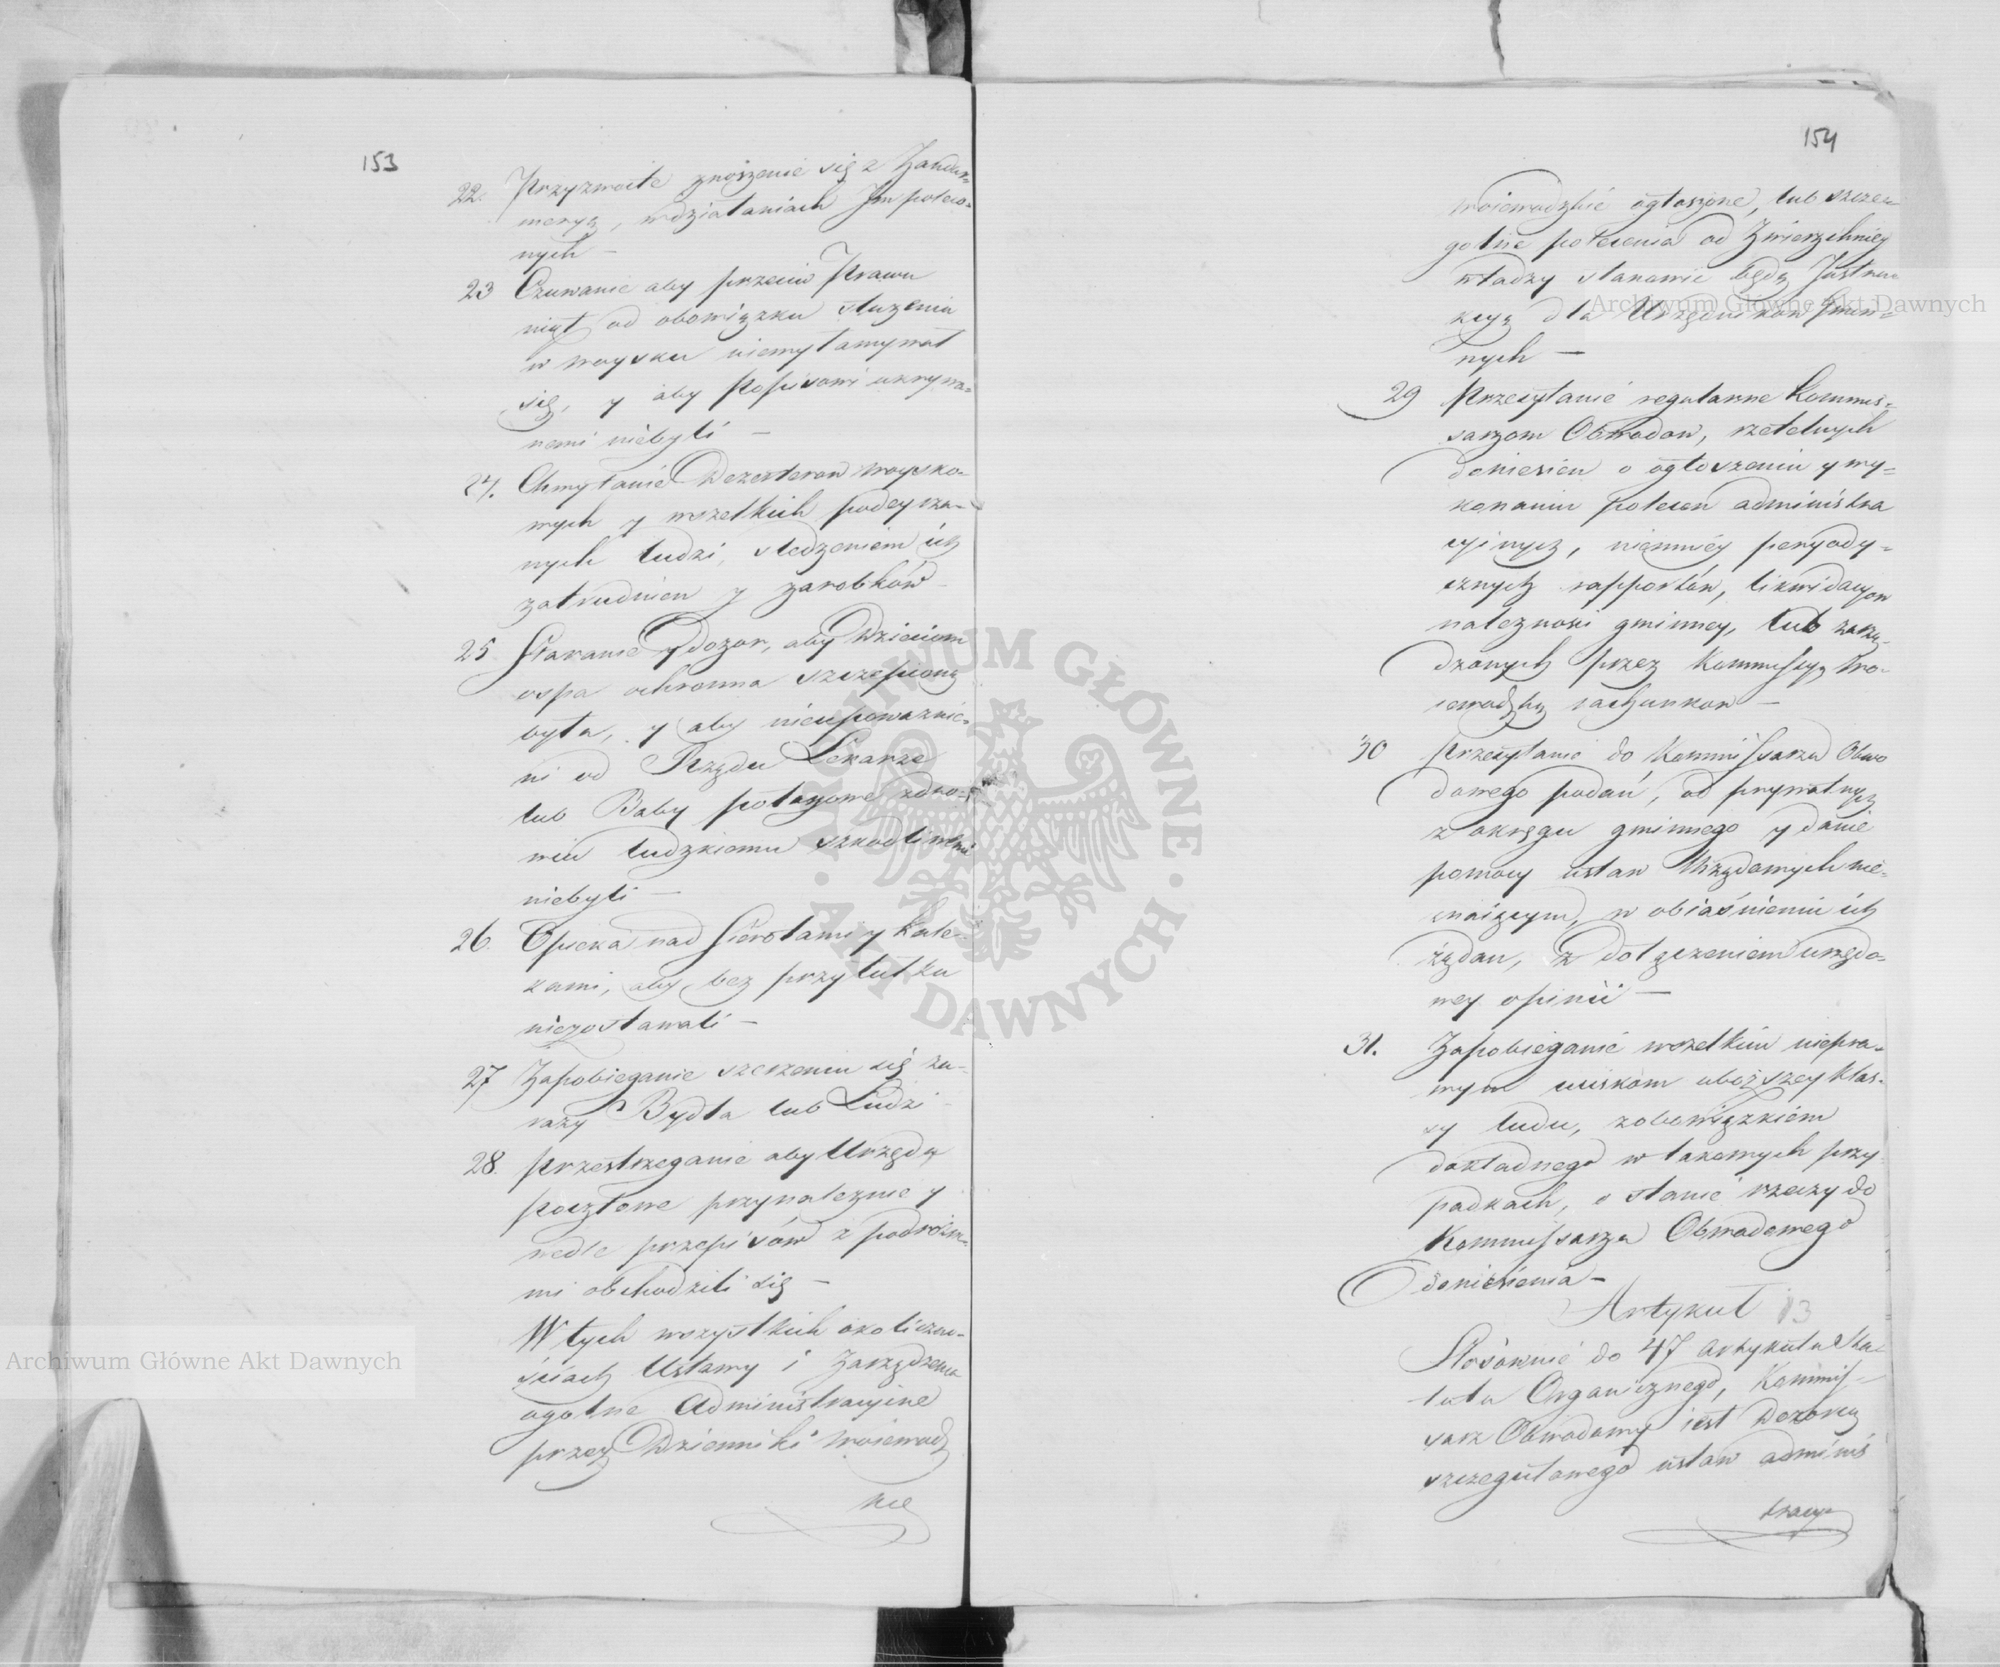 153
22. Przyzwoite znoszenie się z Żandar=
meryą, w działaniach Jm poleco=
nych —
23 Czuwanie aby przeciw Prawu
nikt od obowiązku służenia
w woysku niewyłamywał
się, y aby Popisowi ukrywa=
nemi niebyli —
24. Chwytanie Dezerterow woysko=
wych y wszelkich podeyrza=
nych ludzi, śledzeniem ich
zatrudnien y zarobków —
25 Staranie y dozor, aby Dzieciom
ospa ochronna szczepioną
była, y aby nieupoważnie=
ni od Rządu Lekarze
lub Baby połogowe zdro=
wiu ludzkiemu szkodliwemi
niebyli —
26. Opieka nad Sierotami y kale=
kami, aby bez przytułku
niezostawali —
27 Zapobieganie szerzeniu się za=
razy Bydła lub Ludzi —
28. Przestrzeganie aby Urzędy
pocztowe przynależnie y
wedle przepisów z podróżne=
mi obchodzili się —
W tych wszystkich okoliczno=
ściach Ustawy i Zarządzenia
ogolne Administracyine
przez Dzienniki Woiewodz
kie
154
Woiewodzkie ogłoszone, lub szcze=
golne polecenia od Zwierzchniey
władzy stanowić będą Jnstru=
kcyą dla Urzędnikow Gmin=
nych —
29 Przesyłanie regularne Kommis=
sarzom Obwodow, rzetelnych
doniesien o ogłoszeniu y wy=
konaniu polecen administra
cyinych, niemniéy peryody=
cznych rapportów, likwidacyow
należności gminney, lub zarzą=
dzonych przez Kommissyą Wo=
iewodzką rachunkow —
30 Przesyłanie do Kommissarza Obwo
dowego podań, od prywatnych
z okręgu gminnego y danie
pomocy ustaw Urzędowych nie=
znaiącym, w obiaśnieniu ich
żądan, z dołączeniem urzędo=
wey opinii —
31. Zapobieganie wszelkim niepra=
wym uciskom uboższey klas=
sy ludu, z obowiązkiem
dokładnego w takowych przy=
padkach, o stanie rzeczy do
Kommissarza Obwodowego
doniesienia —
Artykuł 13
Stosownie do 47 Artykułu Sta=
tutu Organicznego, Kommis=
sarz Obwodowy iest Dozorcą
szczegułowego ustaw adminis
tracyi
Archiwum Główne Akt Dawnych
Archiwum Główne Akt Dawnych
ARCHIWUM GŁÓWNE · AKT DAWNYCH ·